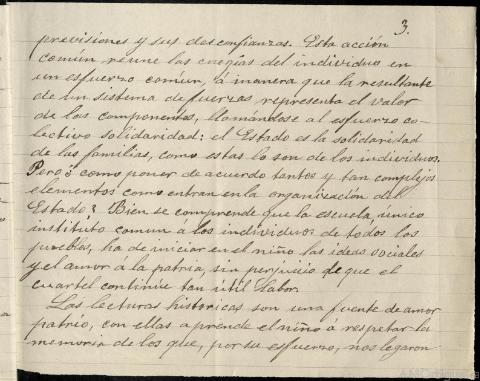 3.
previsiones y sus desconfianzas. Esta acción
común reune las enegías del individuo en
un esfuerzo común, á manera que la resultante
de un sistema de fuerzas representa el valor
de las componentes, llamándose al esfuerzo co-
lectivo solidaridad: el Estado es la solidaridad
de las familias, como estas lo son de los individuos.
Pero ¿como poner de acuerdo tantos y tan complejos
elementos como entran en la organización del
Estado? Bien se comprende que la escuela, único
instituto común a los individuos de todos los
pueblos, ha de iniciar en el niño las ideas sociales
y el amor á la patria, sin perjuicio de que el
cuartel continúe tan útil labor.
Las lecturas históricas son una fuente de amor
patrio, con ellas aprende el niño á respetar la
memoria de los que, por su esfuerzo, nos legaron